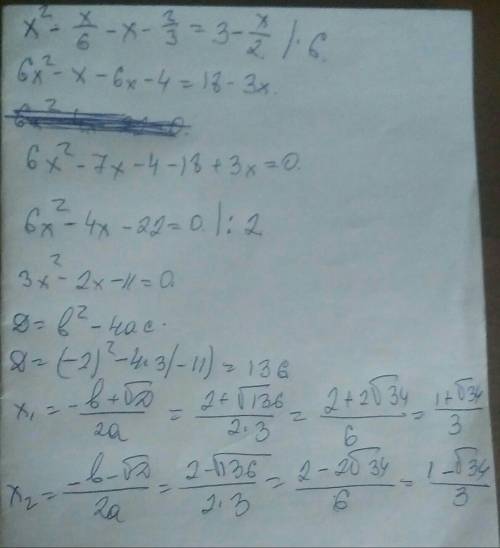 x² - x/6 - x - 2/3 = 3 - x/2 | · 6.
6x² - x - 6x - 4 = 18 - 3x.
6x² - 7x - 4 - 18 + 3x = 0.
6x² - 4x - 22 = 0. | : 2
3x² - 2x - 11 = 0.
D = b² - 4ac.
D = (-2)² - 4·3(-11) = 136
x₁ = (-b + √D)/2a = (2 + √136)/(2·3) = (2 + 2√34)/6 = (1 + √34)/3
x₂ = (-b - √D)/2a = (2 - √136)/(2·3) = (2 - 2√34)/6 = (1 - √34)/3